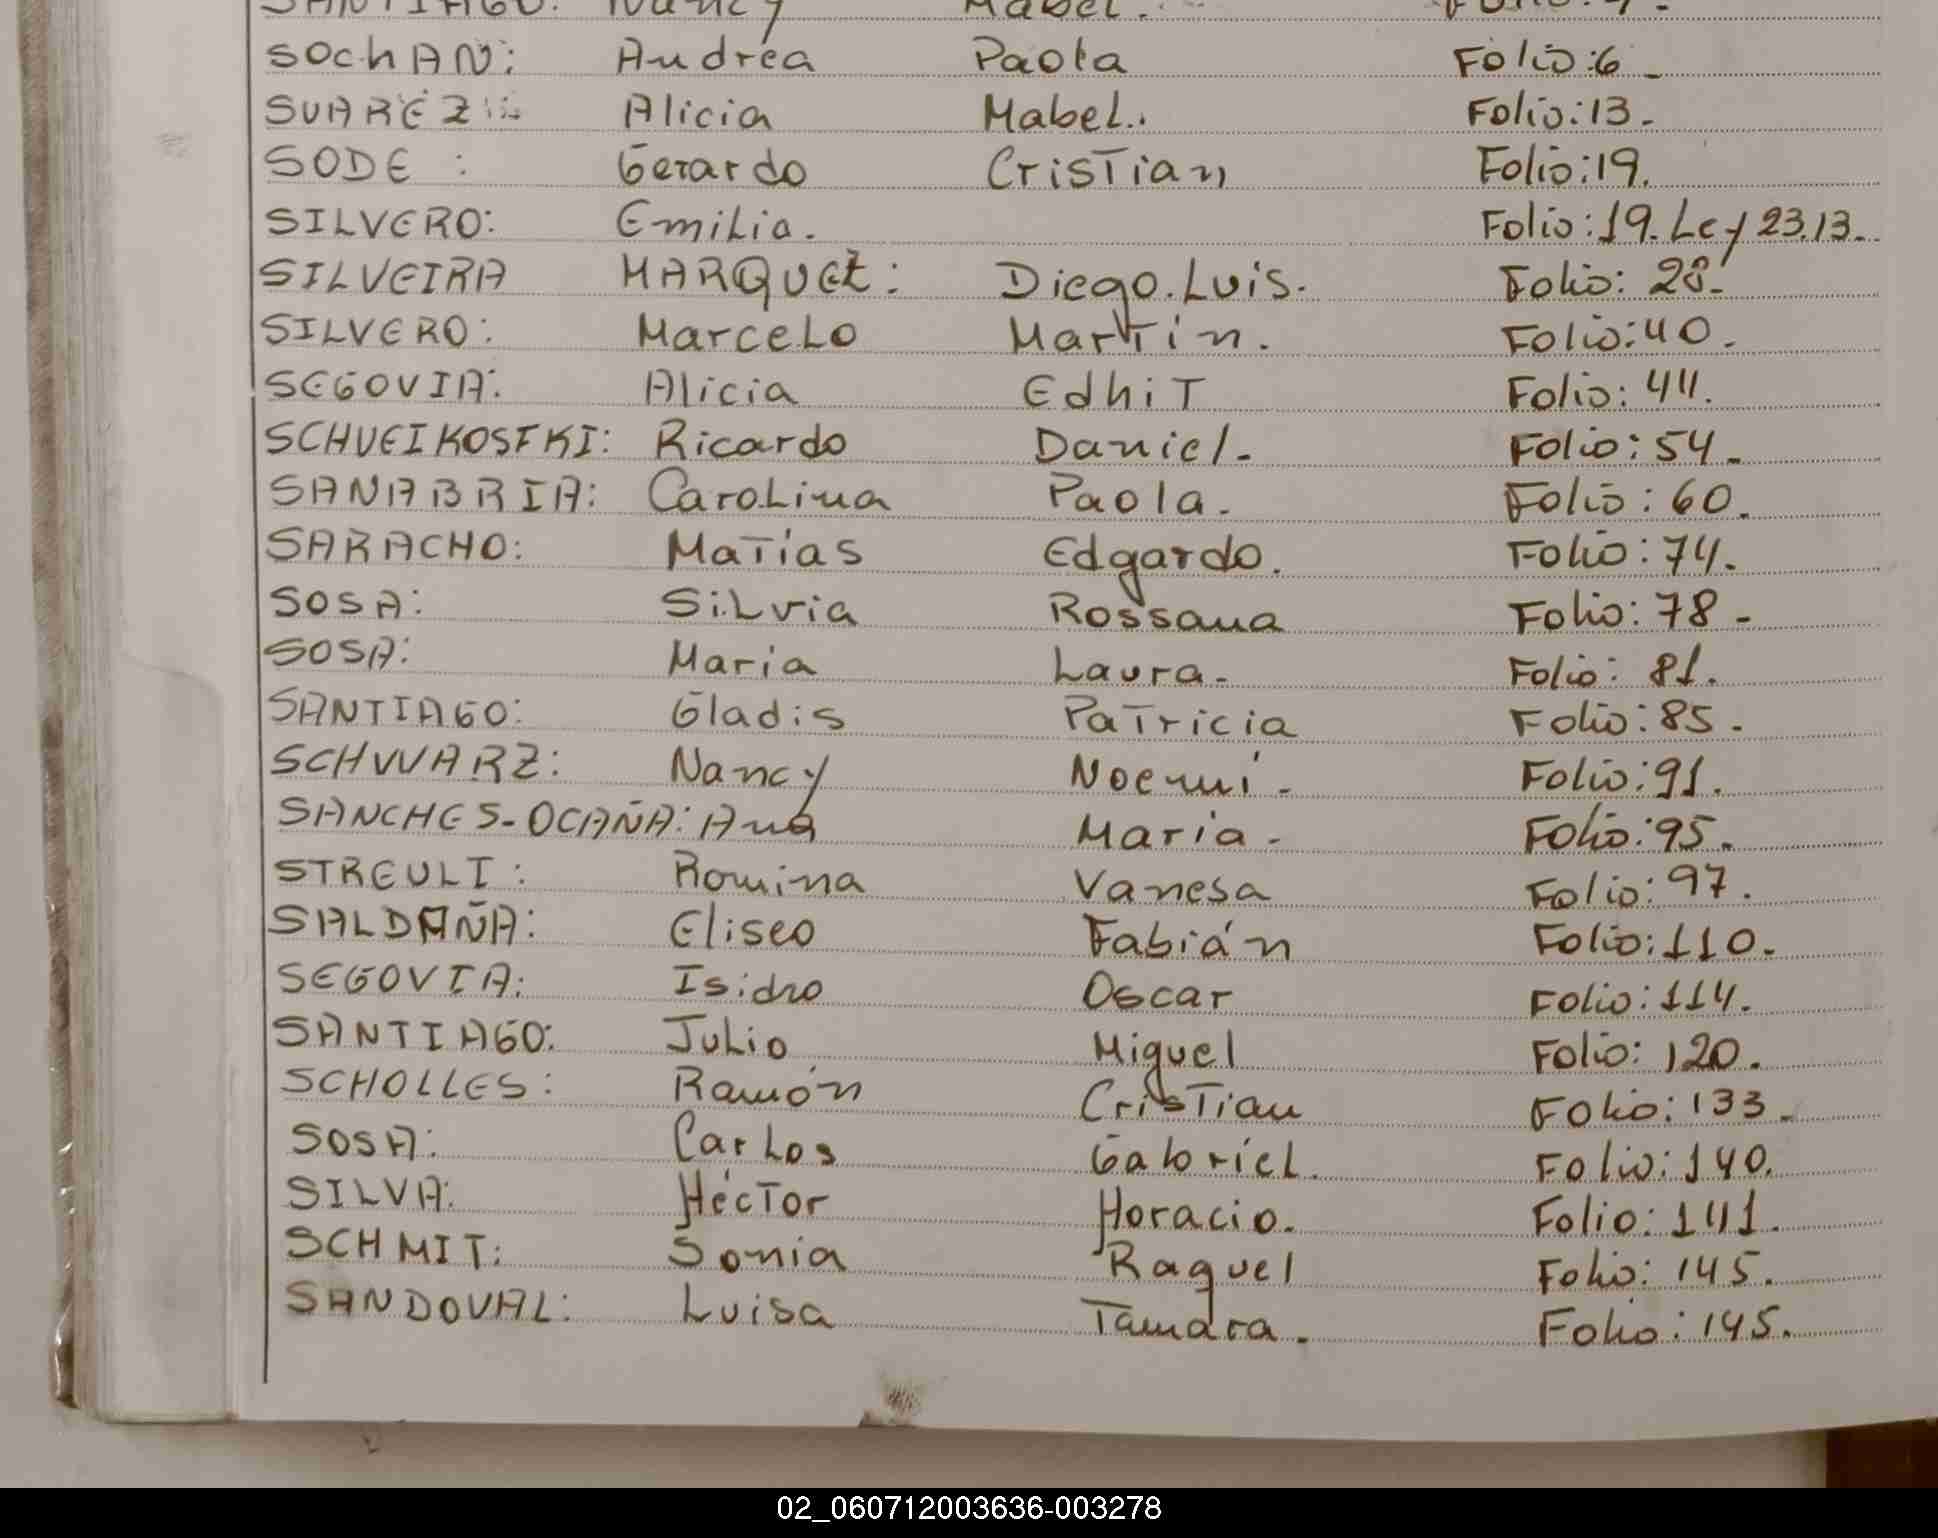 SANTIAGO: Nancy Mabel. Folio: 4.
SOChAN: Andrea Paola Folio: 6 -
SUAREZ: Alicia Mabel. Folio: 13.-
SODE : Gerardo CrisTian Folio: 19.
SILVERO: Emilia. Folio: 19. Ley 23.13.-
SILVEIRA MARQUEZ: Diego. Luis. Folio: 28.-
SILVERO: Marcelo Martin. Folio: 40.
SEGOVIA: Alicia EdhiT Folio: 44.
SCHVEIKOSFKI: Ricardo Daniel- Folio: 54.
SANABRIA: Carolina Paola. Folio: 60.
SARACHO: MaTías Edgardo. Folio: 74.
SOSA: Silvia Rossana Folio: 78 -
SOSA: Maria Laura. Folio: 81.
SANTIAGO: Gladis PaTricia Folio: 85.
SCHWARZ: Nancy Noemí. Folio: 91.
SANCHES-OCAÑA: Ana Maria- Folio: 95.
STREULI: Romina Vanesa Folio: 97.
SALDAÑA: Eliseo Fabián Folio: 110.
SEGOVIA: Isidro Oscar Folio: 114.
SANTIAGO: Julio Miguel Folio: 120.
SCHOLLES: Ramón CrisTian Folio: 133.
SOSA: Carlos Gabriel. Folio: 140.
SILVA: HécTor Horacio. Folio: 141.
SCHMIT: Sonia Raquel Folio: 145.
SANDOVAL: Luisa Tamara. Folio: 145.
02_060712003636-003278